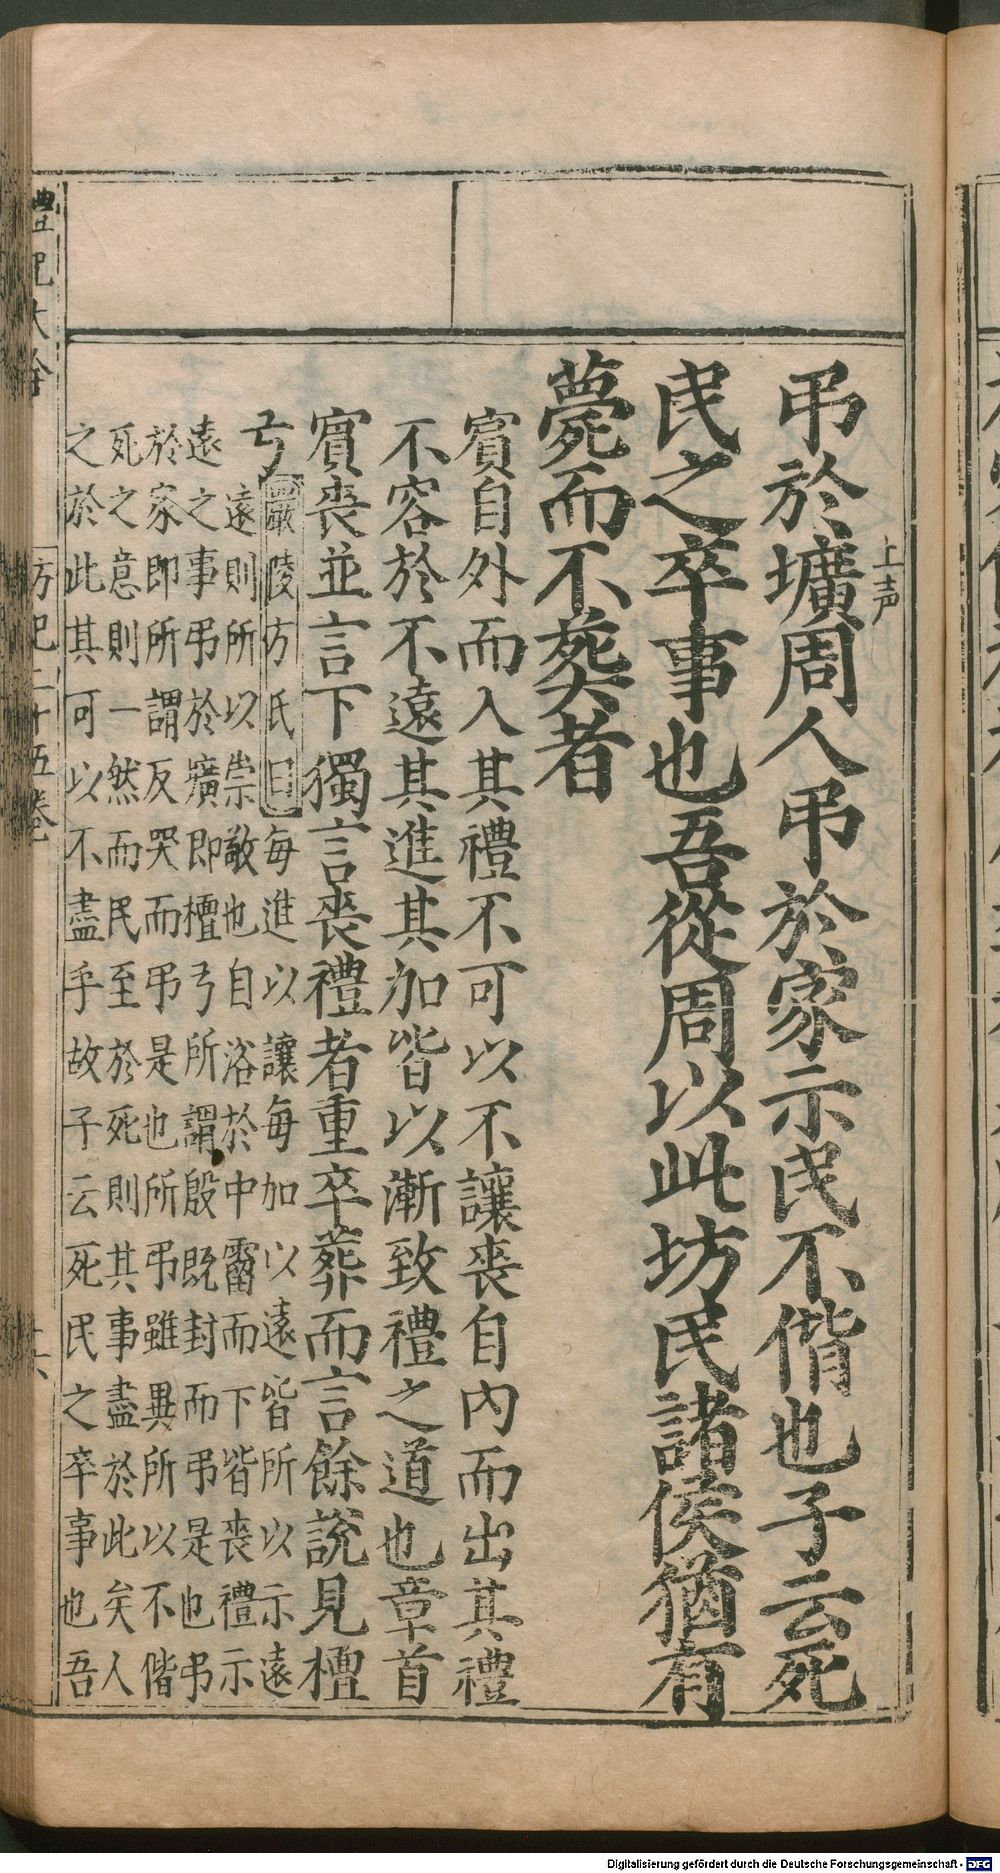 弔於壙周人弔於家示民不偕也子云死
上声
民之卒事也吾從周以此坊民諸侯猶有
薨而不葬者
賓自外而入其禮不可以不讓喪自内而出其禮
不容於不遠其進其加皆以漸致禮之道也章首
賓喪並言下獨言喪禮者重卒葬而言餘說見檀
弓
嚴陵方氏曰每進以讓每加以遠皆所以示遠
遠則所以崇敬也自浴於中霤而下皆喪禮示
遠之事弔於壙即檀弓所謂殷既封而弔是也弔
於家即所謂反哭而弔是也所弔雖異所以不偕
死之意則一然而民至於死則其事盡於此矣人
之於此其可以不盡乎故子云死民之卒事也吾
禮記大全
坊記二十五卷
十六
Digitalisierung gefördert durch die Deutsche Forschungsgemeinschaft - DFG